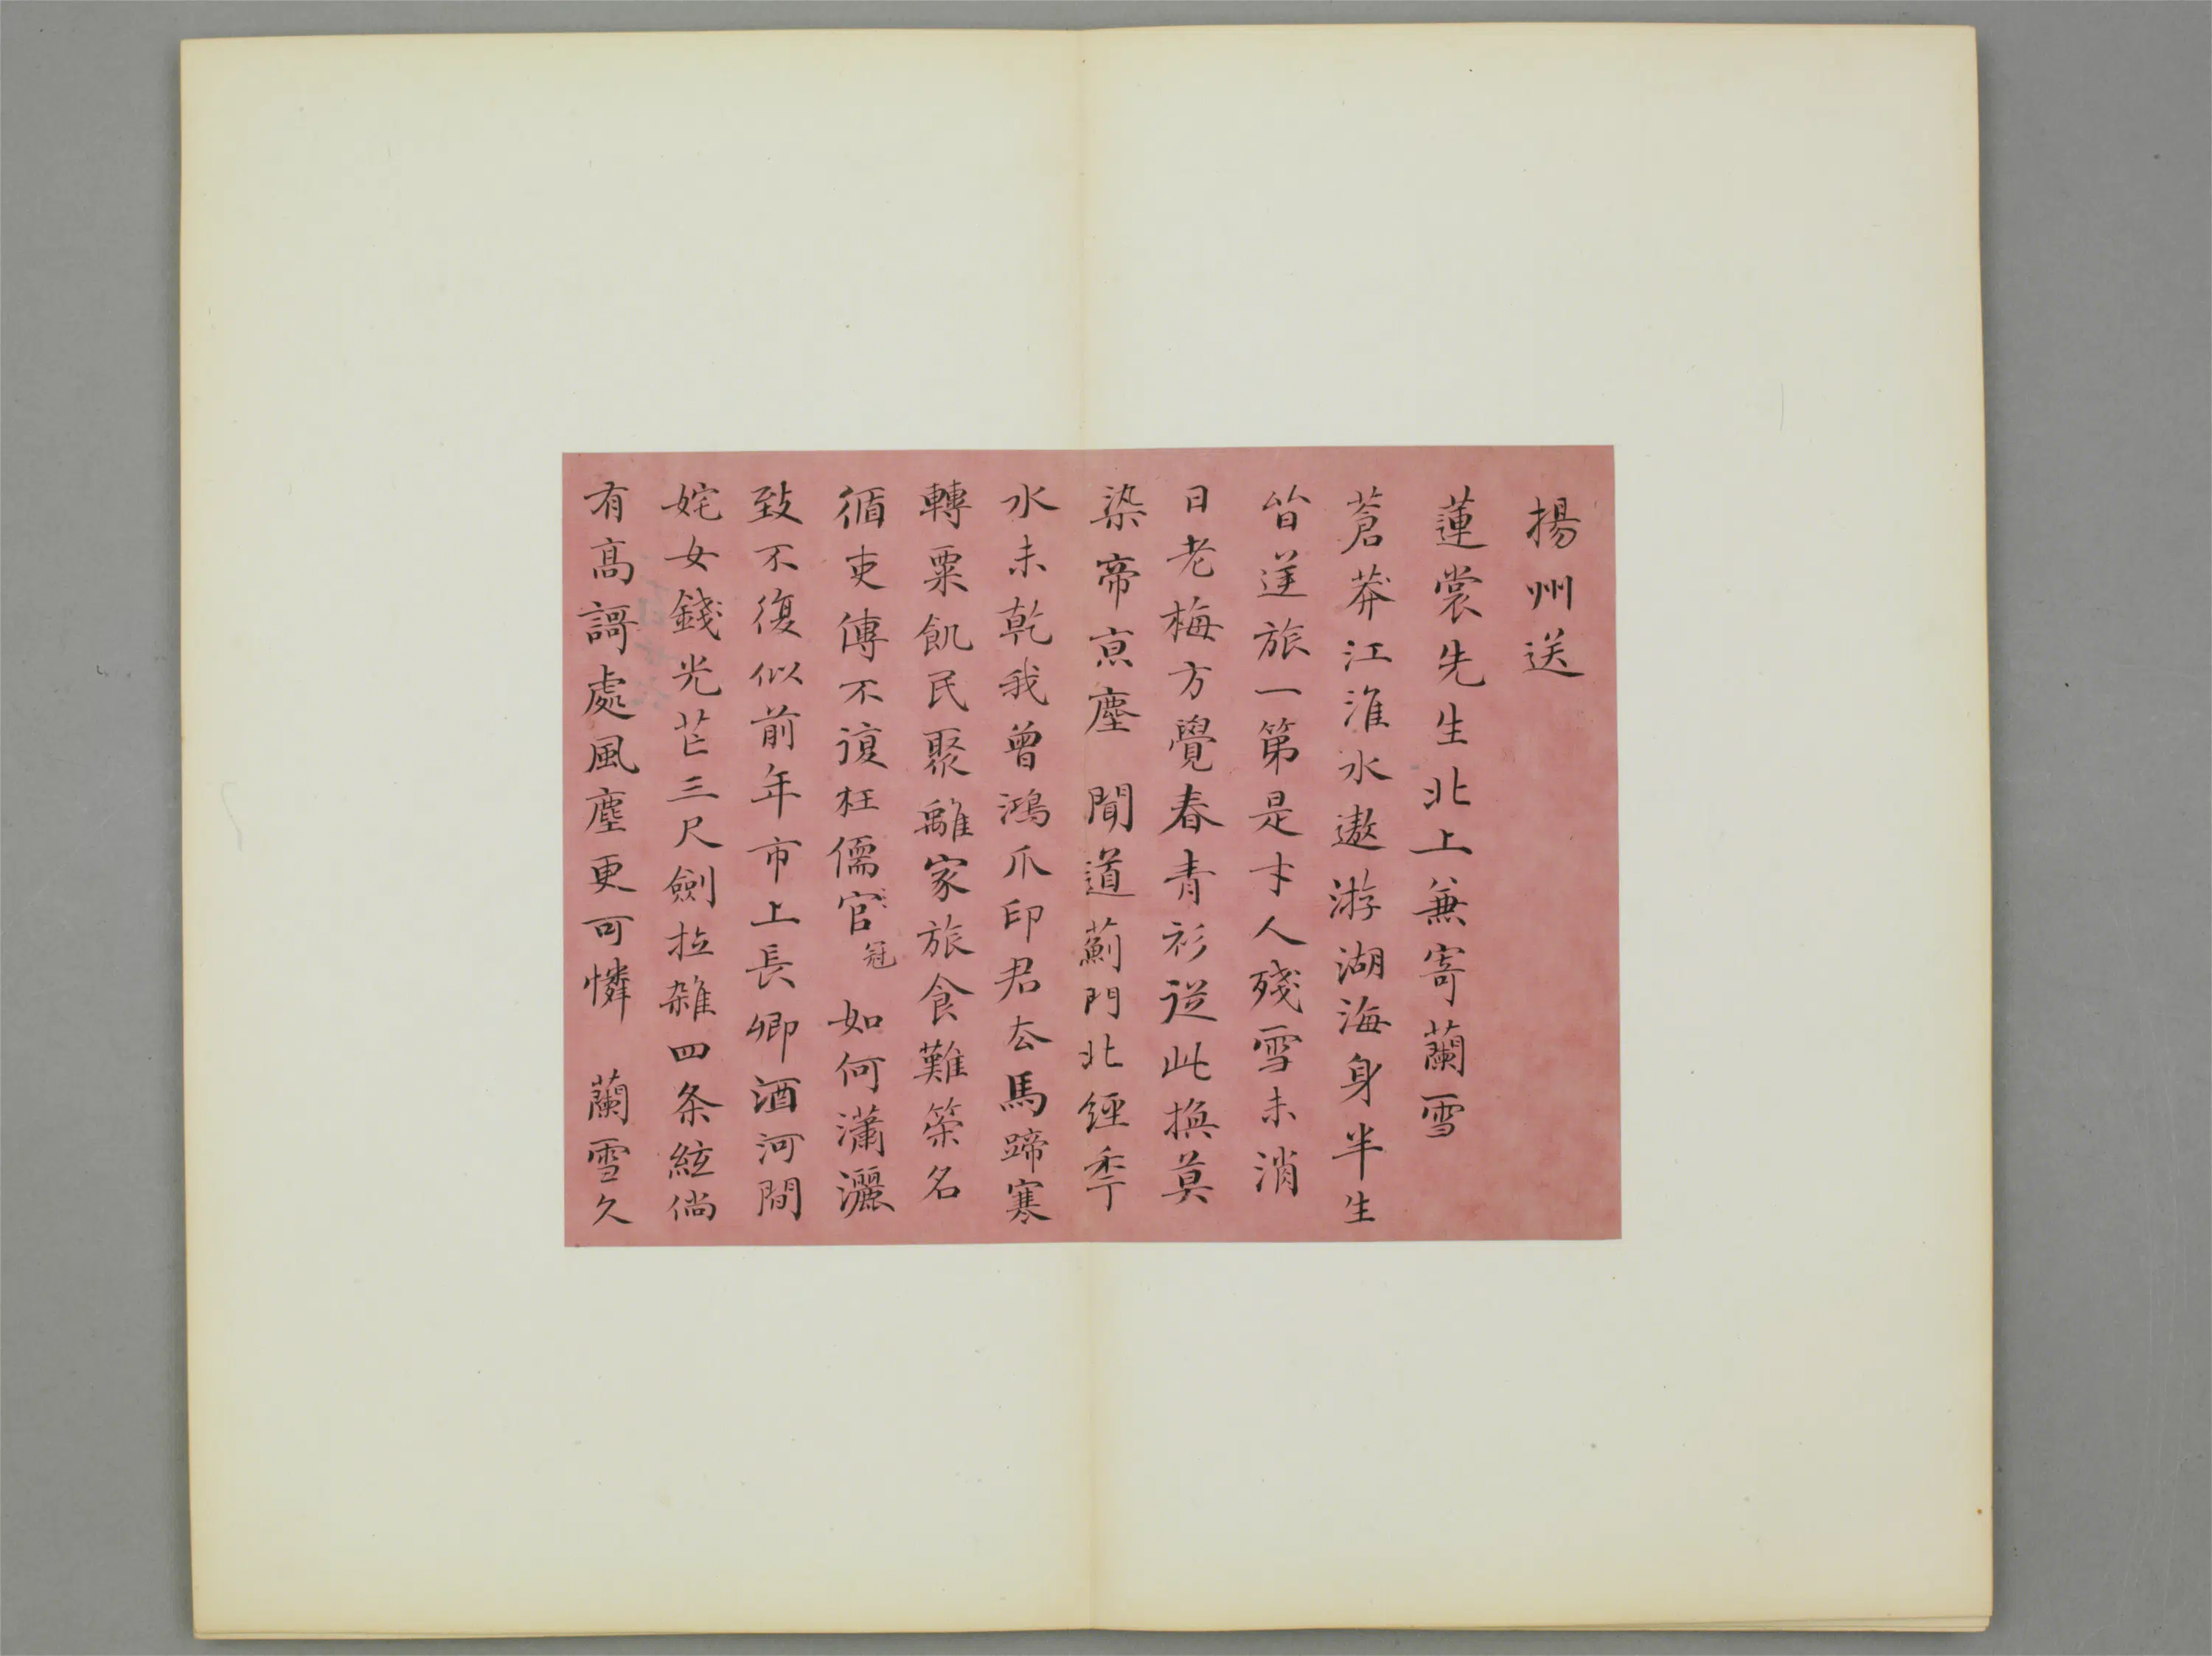 揚州送
蓮裳先生北上兼寄蘭雪
蒼莽江淮水遨游湖海身半生
皆逆旅一第是才人殘雪未消
日老梅方覺春青衫從此換莫
染帝京塵 聞道薊門北經季
水未乾我曾鴻爪印君去馬蹄寒
轉粟飢民聚離家旅食難策名
循吏傳不復枉儒官冠 如何瀟灑
致不復似前年市上長卿酒河間
姹女錢光芒三尺劍拉雜四条絃倘
有高謌處風塵更可憐 蘭雪久